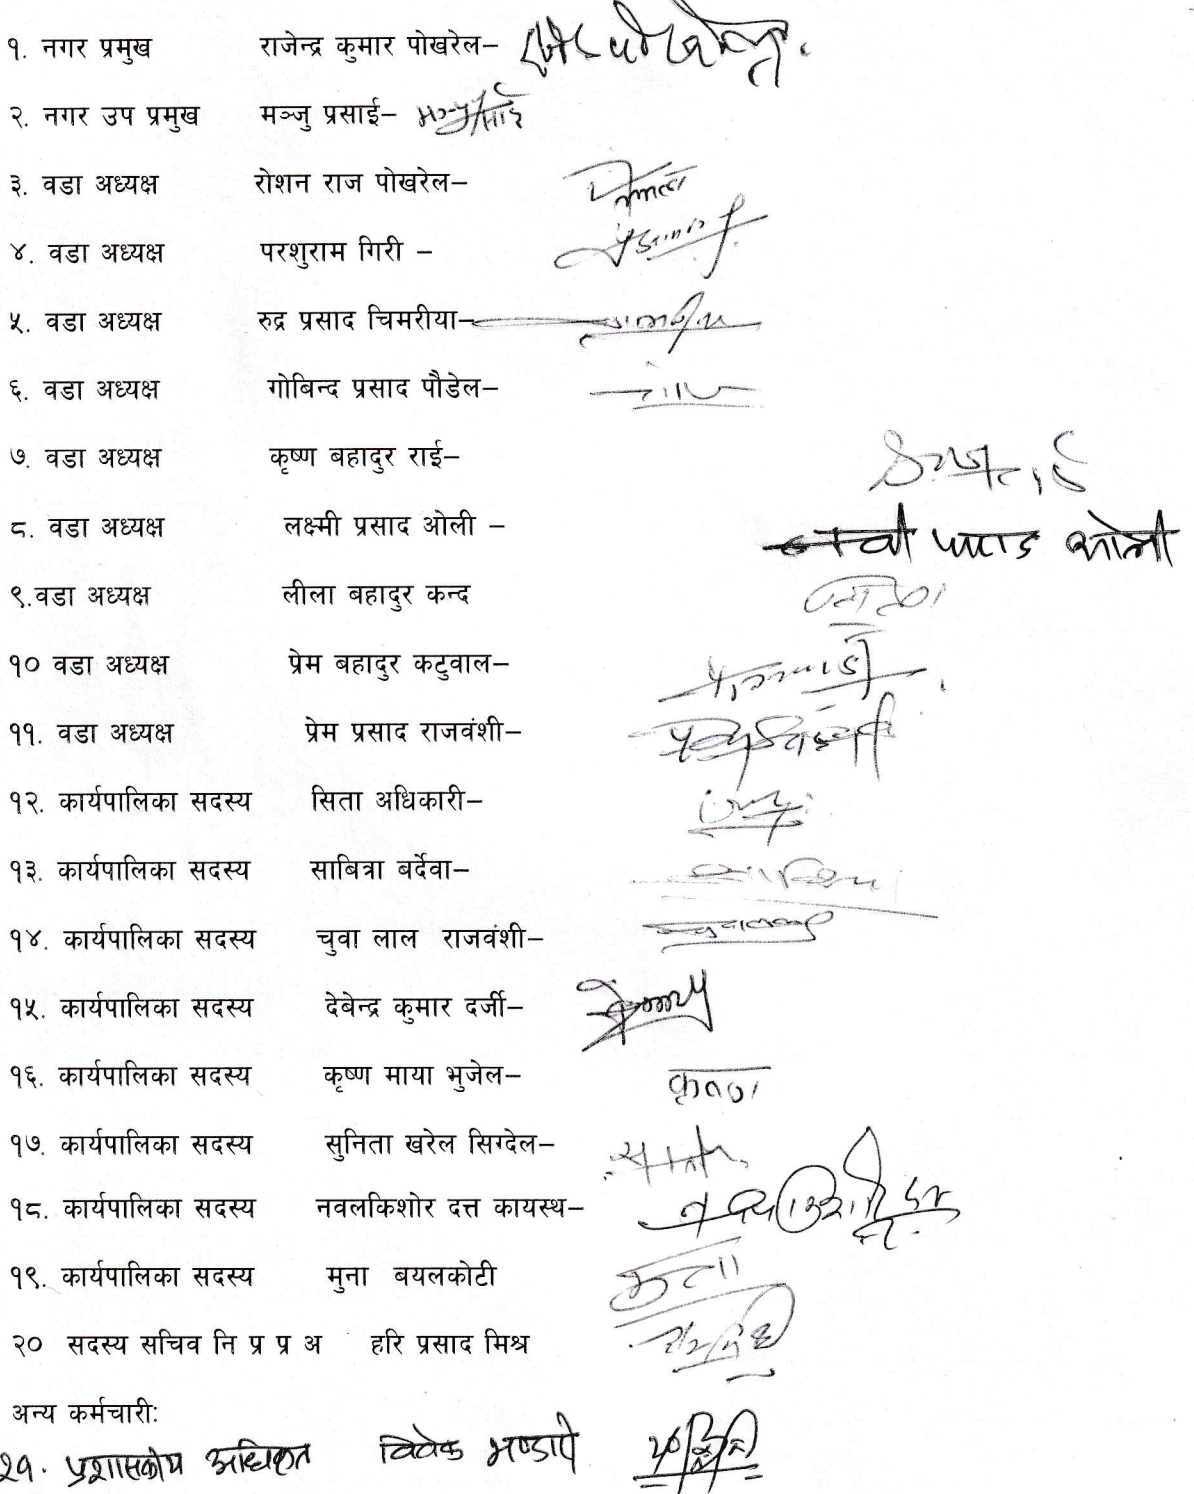 १. नगर प्रमुख राजेन्द्र कुमार पोखरेल–
२. नगर उप प्रमुख मञ्जु प्रसाई–
३. वडा अध्यक्ष रोशन राज पोखरेल–
४. वडा अध्यक्ष परशुराम गिरी –
५. वडा अध्यक्ष रुद्र प्रसाद चिमरीया–
६. वडा अध्यक्ष गोबिन्द प्रसाद पौडेल–
७. वडा अध्यक्ष कृष्ण बहादुर राई–
८. वडा अध्यक्ष लक्ष्मी प्रसाद ओली –
९.वडा अध्यक्ष लीला बहादुर कन्द
१० वडा अध्यक्ष प्रेम बहादुर कटुवाल–
११. वडा अध्यक्ष प्रेम प्रसाद राजवंशी–
१२. कार्यपालिका सदस्य सिता अधिकारी–
१३. कार्यपालिका सदस्य साबित्रा बर्देवा–
१४. कार्यपालिका सदस्य चुवा लाल राजवंशी–
१५. कार्यपालिका सदस्य देबेन्द्र कुमार दर्जी–
१६. कार्यपालिका सदस्य कृष्ण माया भुजेल–
१७. कार्यपालिका सदस्य सुनिता खरेल सिग्देल–
१८. कार्यपालिका सदस्य नवलकिशोर दत्त कायस्थ–
१९. कार्यपालिका सदस्य मुना बयलकोटी
२० सदस्य सचिव नि प्र प्र अ हरि प्रसाद मिश्र
अन्य कर्मचारी:
२१. प्रशासकीय अधिकृत विवेक